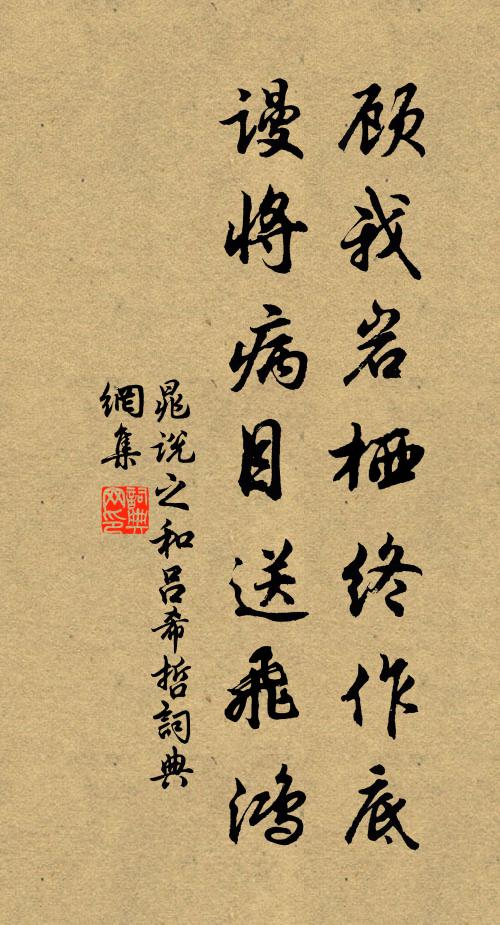 顾我岩栖终作底
谩将病目送飛鸿
晁说之和吕希哲詞典
網集
詞典
网印